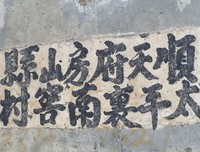 順天府房山縣
太平裏南窖村